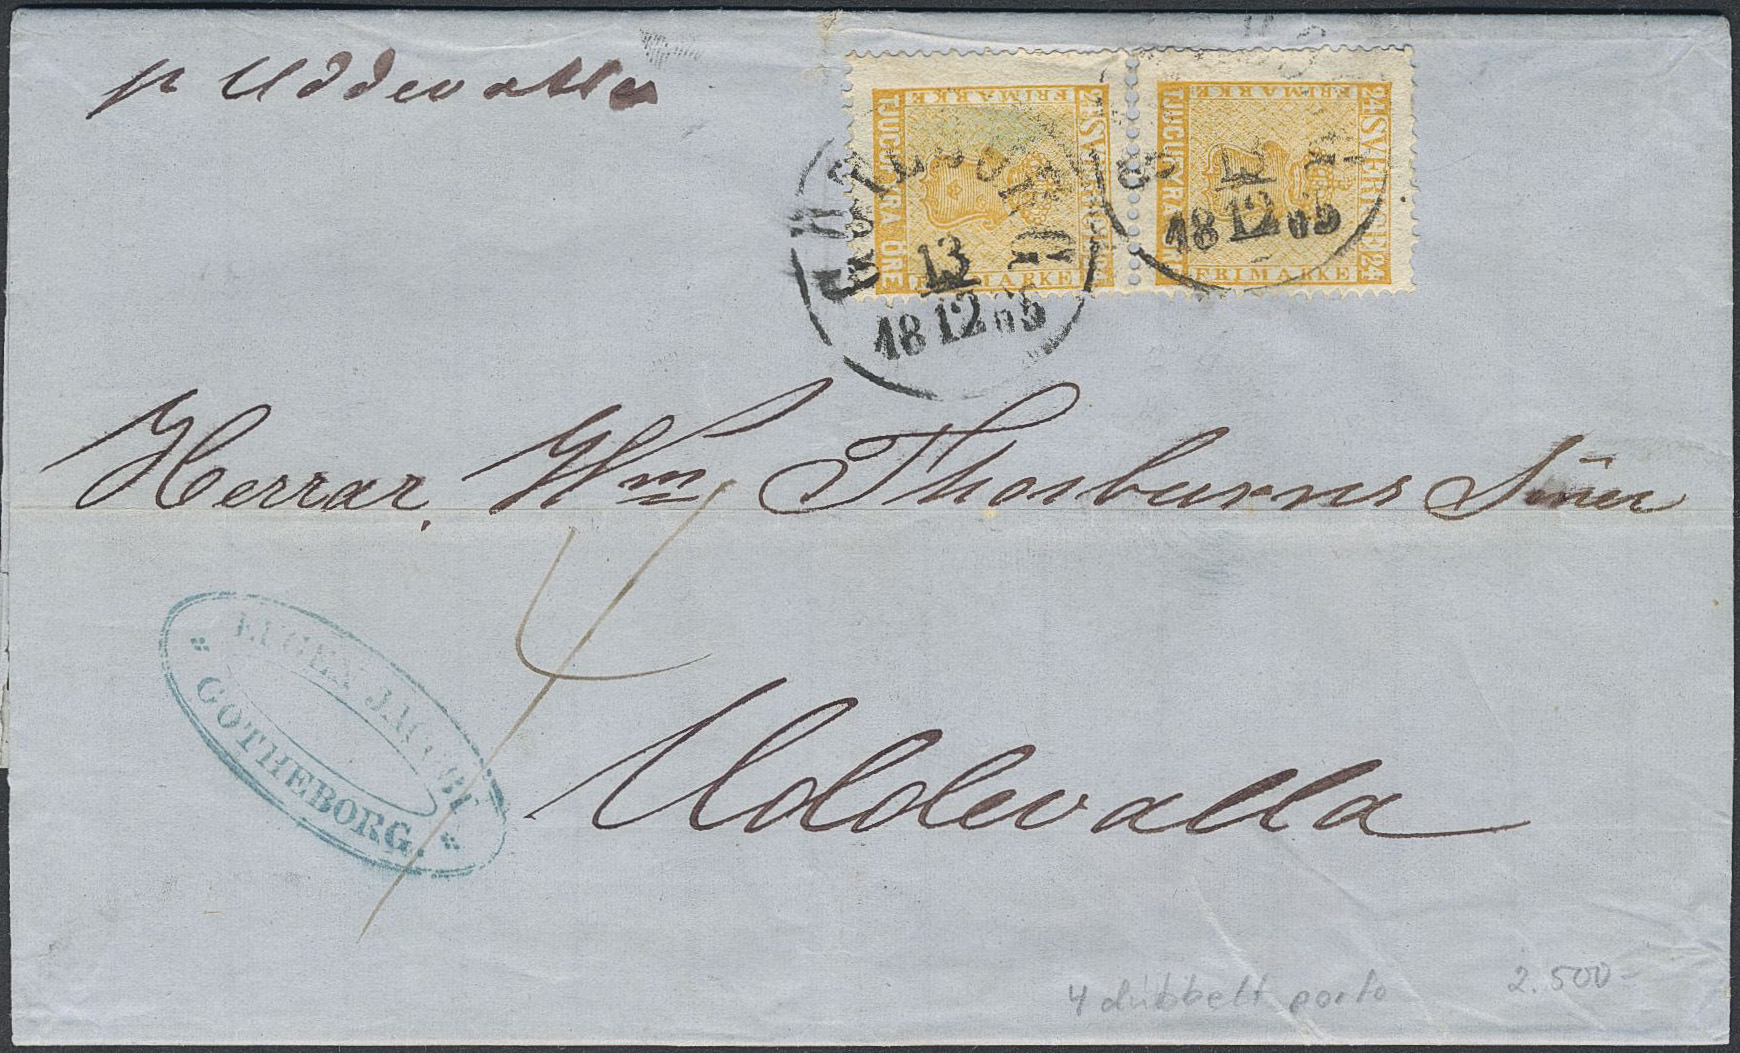 p Uddevalla
FRIMÄRKE
TJUGUFYRA ÖRE
24 SVERIGE 24
FRIMÄRKE
FRIMÄRKE
TJUGUFYRA ÖRE
24 SVERIGE 24
FRIMÄRKE
GÖTEBORG
13
18 12 65
18 12 65
Herrar, Wm Thorburns Söner
4
EUGEN JACOBI
GOTHEBORG.
Uddevalla
4 dubbelt porto
2.500-